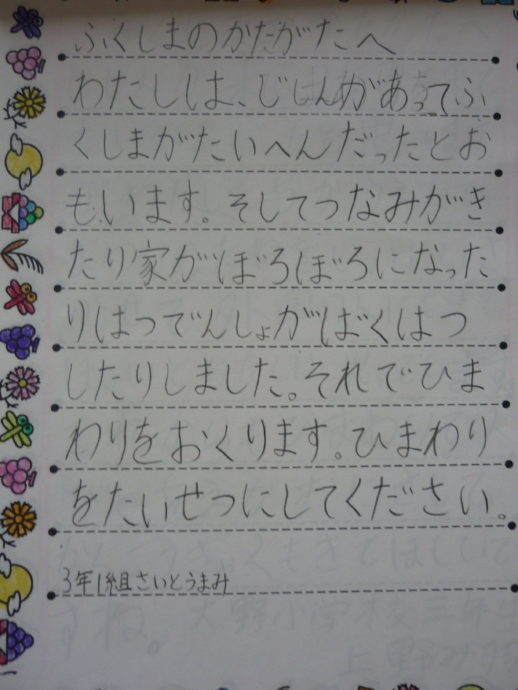 ふくしまのかたがたへ
わたしは、じしんがあってふ
くしまがたいへんだったとお
もいます。そしてつなみがき
たり家がぼろぼろになった
りはつでんしょがばくはつ
したりしました。それでひま
わりをおくります。ひまわり
をたいせつにしてください。
3年1組さいとうまみ